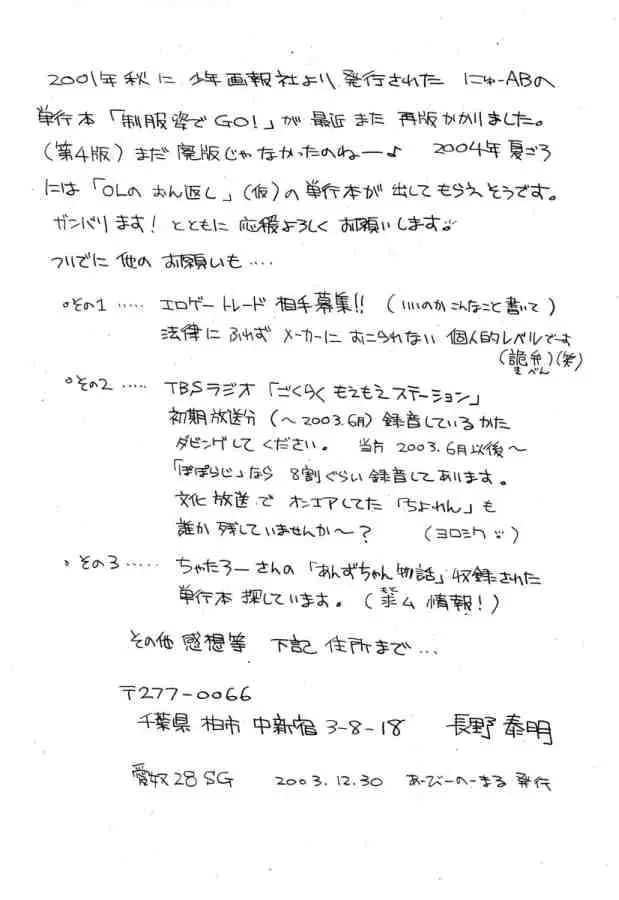 2001年 秋 に 少年画報社より 発行された にゅーABの
単行本「制服姿でGO!」が 最近 また 再版かかりました。
(第4版) まだ 廃版じゃなかったのねー♪ 2004年 夏ごろ
には「OLの おん返し」(仮)の 単行本が 出してもらえそうです。
ガンバります! とともに 応援よろしく お願いします
ついでに 他の お願いも‥‥
その1 ‥‥‥ エロゲー トレード 相手募集!! (いいのか こんなこと 書いて)
法律に ふれず メーカーに おこられない 個人的レベルです
(詭弁)(笑)
きべん
その2 ‥‥‥ TBSラジオ「ごくらく もえもえ ステーション」
初期放送分 (〜2003.6月) 録音しているかた
ダビングしてください。 当方 2003.6月以後〜
「ぽぽらじ」なら 8割ぐらい 録音してあります。
文化放送で オンエアしてた「ちよれん」も
誰か 残していませんか〜? (ヨロシク)
その3 ‥‥‥ ちゃたろーさんの「あんずちゃん物語」収録された
単行本 探しています。 (情報!)
その他 感想等 下記 住所まで…
〒277-0066
千葉県 柏市 中新宿 3-8-18 長野 泰明
愛奴28SG 2003.12.30 あーびーのーまる 発行